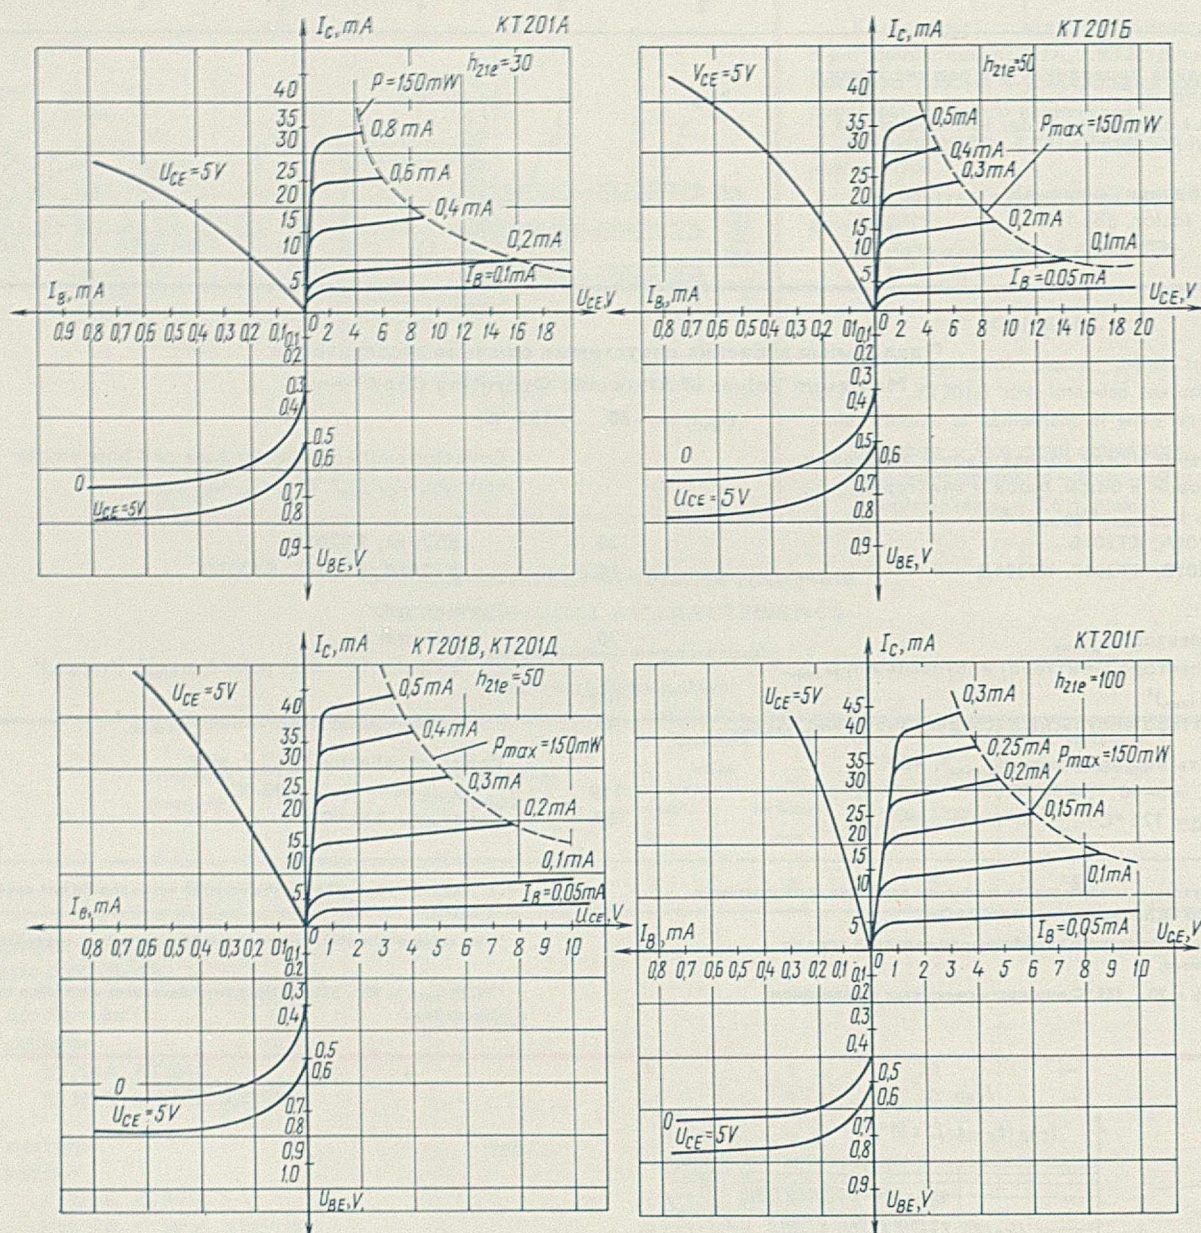 I_C, mA KT201A
h_21e=30
P=150mW
40
35
30
25
20
15
10
5
0,8 mA
0,6 mA
0,4 mA
0,2mA
I_B=0.1mA
U_CE=5V
I_B, mA
U_CE, V
0.9 0,8 0,7 0,6 0,5 0,4 0,3 0,2 0,1
0 2 4 6 8 10 12 14 16 18
0,1
0.2
0.3
0.4
0.5
0.6
0.7
0.8
0.9
0
U_CE=5V
U_BE, V
I_C, mA КТ201Б
h_21e=50
V_CE=5V
40
35
30
25
20
15
10
5
0,5mA
P_max=150mW
0,4mA
0,3mA
0,2mA
0,1mA
I_B=0.05mA
I_B, mA
U_CE, V
0,8 0,7 0,6 0,5 0,4 0,3 0,2 0,1
0 2 4 6 8 10 12 14 16 18 20
0,1
0.2
0,3
0,4
0,5
0,6
0,7
0,8
0,9
0
U_CE=5V
U_BE, V
I_C, mA KT201В, KT201Д
h_21e=50
U_CE=5V
40
35
30
25
20
15
10
5
0,5mA
0,4mA
P_max=150mW
0,3mA
0,2mA
0,1mA
I_B=0.05mA
I_B, mA
U_CE, V
0,8 0,7 0,6 0,5 0,4 0,3 0,2 0,1
0 1 2 3 4 5 6 7 8 9 10
0,1
0.2
0,3
0,4
0,5
0,6
0,7
0,8
0,9
1.0
0
U_CE=5V
U_BE, V
I_C, mA KT201Г
h_21e=100
U_CE=5V
45
40
35
30
25
20
15
10
5
0,3mA
0,25mA
P_max=150mW
0,2mA
0,15mA
0,1mA
I_B=0,05mA
I_B, mA
U_CE, V
0,8 0,7 0,6 0,5 0,4 0,3 0,2 0,1
0 1 2 3 4 5 6 7 8 9 10
0,1
0,2
0,3
0,4
0,5
0,6
0,7
0,8
0,9
0
U_CE=5V
U_BE, V